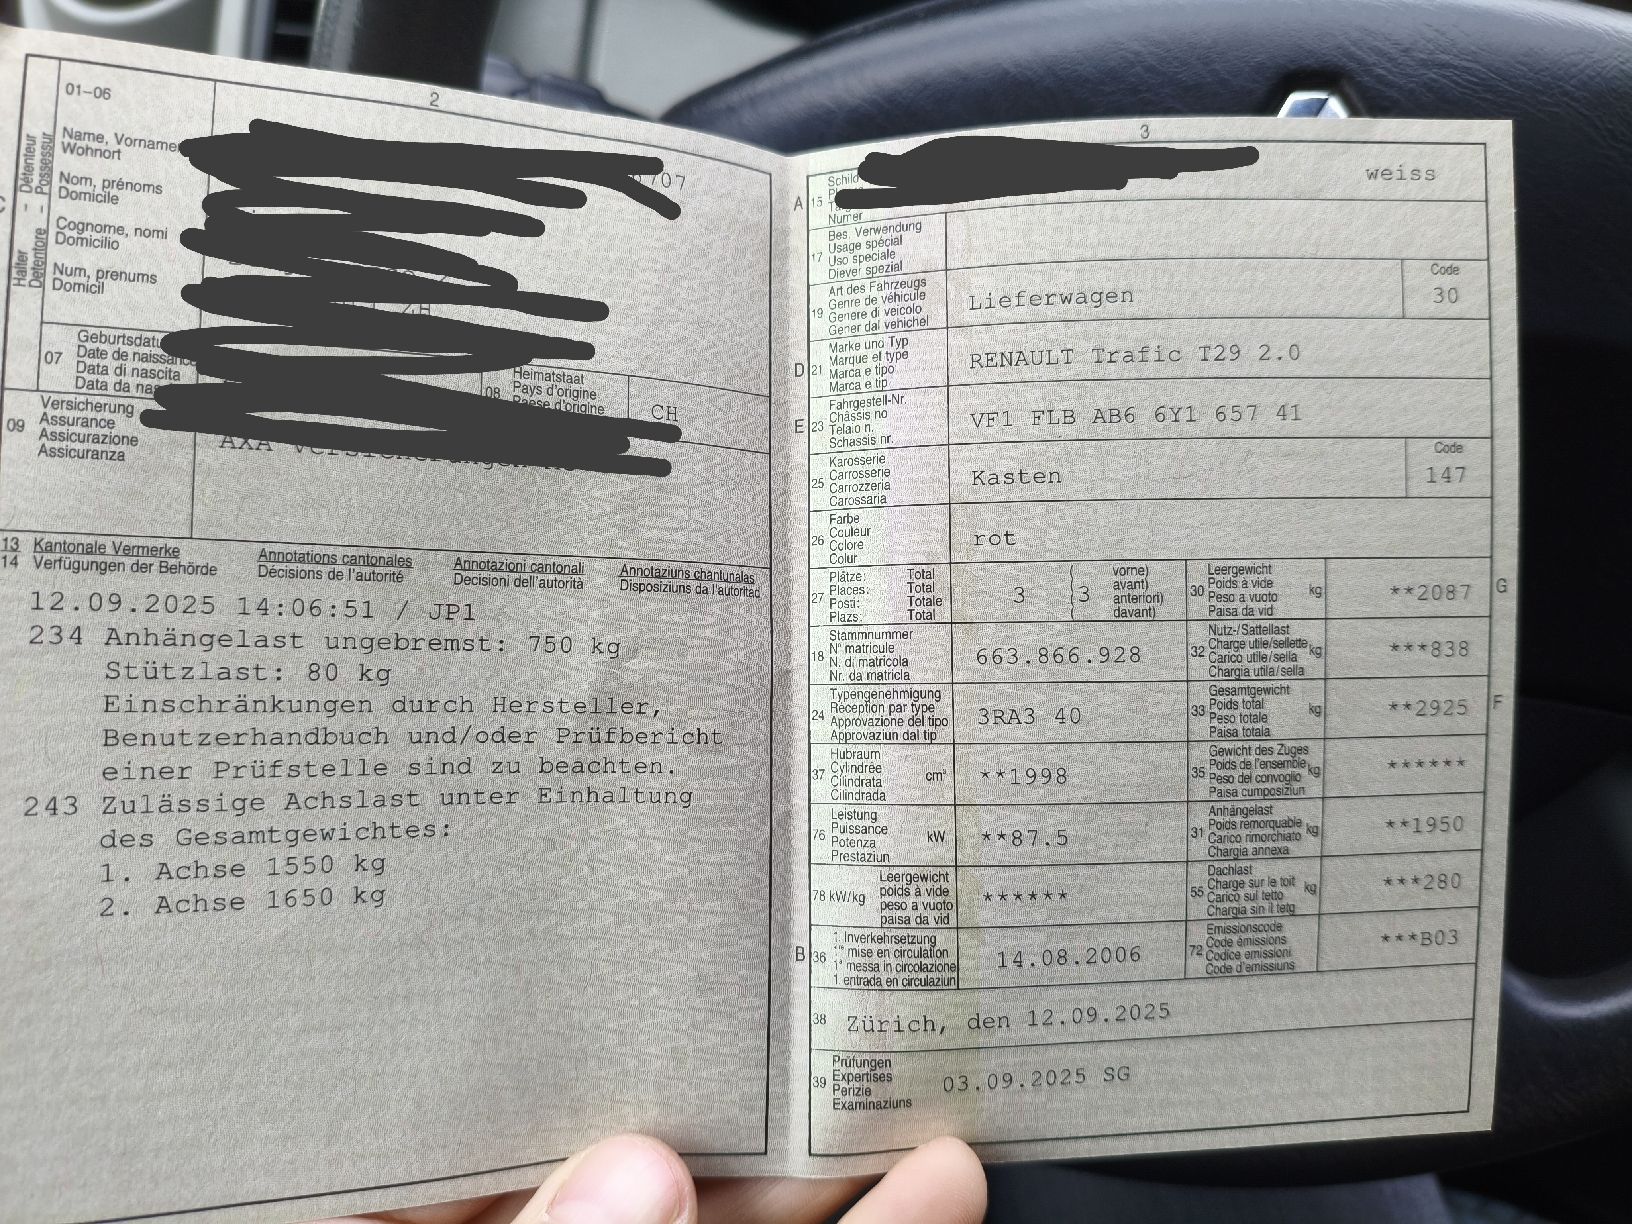 2
01-06
Halter - Détenteur
Detentore - Possessur
Name, Vorname
Wohnort
Nom, prénoms
Domicile
Cognome, nomi
Domicilio
Num, prenums
Domicil
707
07
Date de naissance
Data di nascita
08
Heimatstaat
Pays d'origine
CH
09
Versicherung
Assurance
Assicurazione
Assicuranza
AXA
13 Kantonale Vermerke Annotations cantonales Annotazioni cantonali Annotaziuns chantunalas
14 Verfügungen der Behörde Décisions de l'autorité Decisioni dell'autorità Disposiziuns da l'autoritad
12.09.2025 14:06:51 / JP1
234 Anhängelast ungebremst: 750 kg
Stützlast: 80 kg
Einschränkungen durch Hersteller,
Benutzerhandbuch und/oder Prüfbericht
einer Prüfstelle sind zu beachten.
243 Zulässige Achslast unter Einhaltung
des Gesamtgewichtes:
1. Achse 1550 kg
2. Achse 1650 kg
3
A 15
Schild
Numer
weiss
17
Bes. Verwendung
Usage spécial
Uso speciale
Diever spezial
19
Art des Fahrzeugs
Genre de véhicule
Genere di veicolo
Gener dal vehichel
Lieferwagen
Code
30
D 21
Marke und Typ
Marque et type
Marca e tipo
Marca e tip
RENAULT Trafic T29 2.0
E 23
Fahrgestell-Nr.
Châssis no
Telaio n.
Schassis nr.
VF1 FLB AB6 6Y1 657 41
25
Karosserie
Carrosserie
Carrozzeria
Carossaria
Kasten
Code
147
26
Farbe
Couleur
Colore
Colur
rot
27
Plätze: Total
Places: Total
Posti: Totale
Plazs: Total
3
3
vorne)
avant)
anteriori)
davant)
30
Leergewicht
Poids à vide
Peso a vuoto
Paisa da vid
kg
**2087
G
18
Stammnummer
N° matricule
N. di matricola
Nr. da matricla
663.866.928
32
Nutz-/Sattellast
Charge utile/sellette
Carico utile/sella
Chargia utila/sella
kg
***838
24
Typengenehmigung
Réception par type
Approvazione del tipo
Approvaziun dal tip
3RA3 40
33
Gesamtgewicht
Poids total
Peso totale
Paisa totala
kg
**2925
F
37
Hubraum
Cylindrée
Cilindrata
Cilindrada
cm³
**1998
35
Gewicht des Zuges
Poids de l'ensemble
Peso del convoglio
Paisa cumposiziun
kg
******
76
Leistung
Puissance
Potenza
Prestaziun
kW
**87.5
31
Anhängelast
Poids remorquable
Carico rimorchiato
Chargia annexa
kg
**1950
78 kW/kg
Leergewicht
poids à vide
peso a vuoto
paisa da vid
******
55
Dachlast
Charge sur le toit
Carico sul tetto
Chargia sin il tetg
kg
***280
B 36
1. Inverkehrsetzung
1re mise en circulation
1a messa in circolazione
1. entrada en circulaziun
14.08.2006
72
Emissionscode
Code émissions
Codice emissioni
Code d'emissiuns
***B03
38 Zürich, den 12.09.2025
39
Prüfungen
Expertises
Perizie
Examinaziuns
03.09.2025 SG